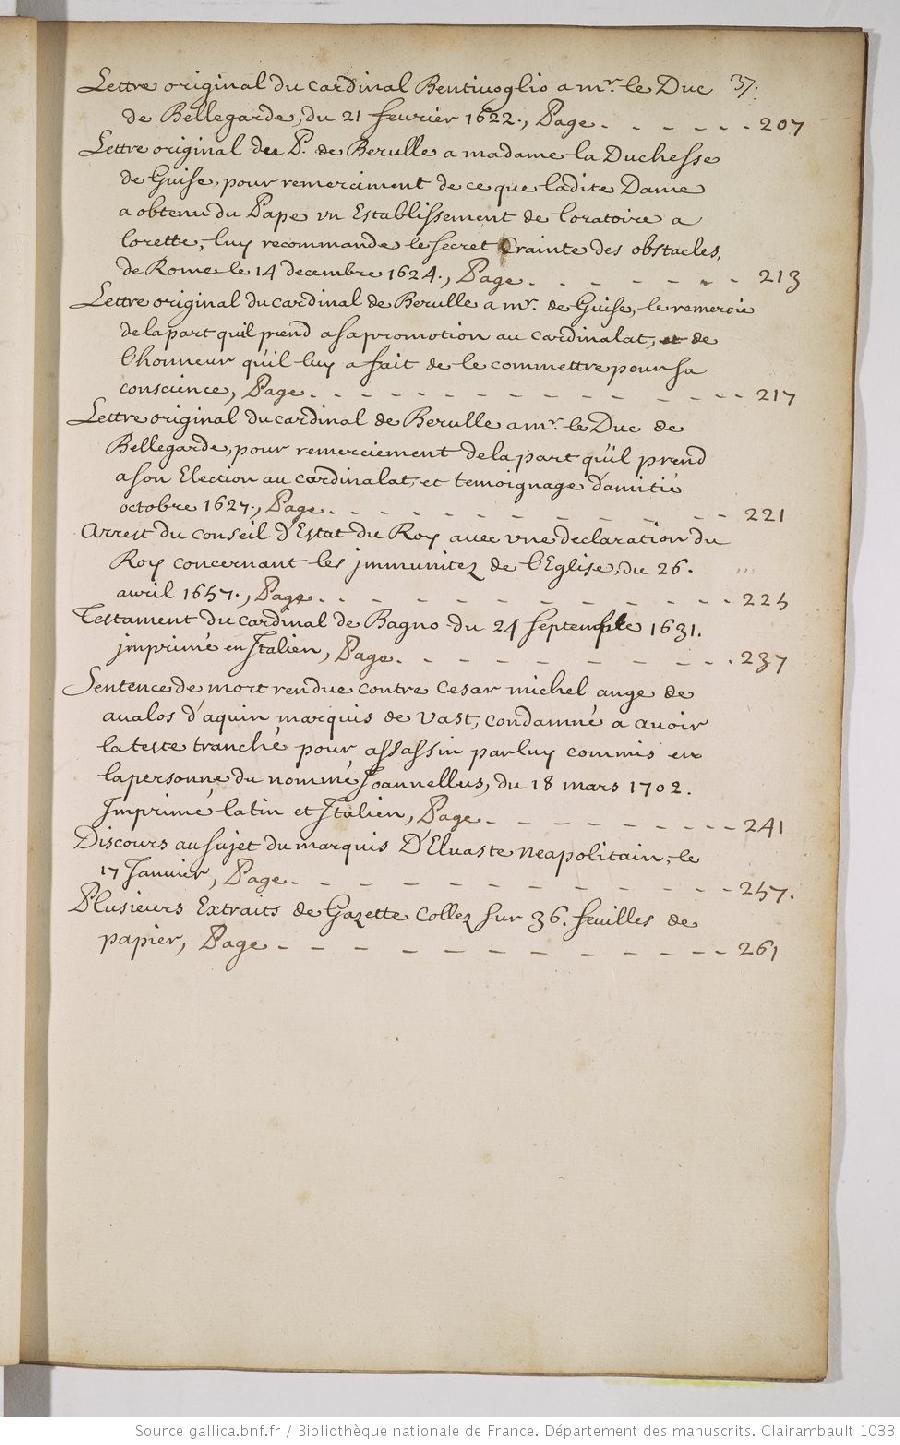 37.
Lettre original du cardinal Bentiuoglio a mr. le Duc
de Bellegarde, du 21 feurier 1622., Page. - - - - - 207
Lettre original du P. de Berulle a madame la Duchesse
de Guise, pour remerciment de ce que ladite Dame
a obtenu du Pape vn Establissement de loratoire a
lorette, luy recommande le secret Crainte des obstacles,
de Rome le 14 decembre 1624., Page. - - - - - - 213
Lettre original du cardinal de Berulle a mr. de Guise, le remercie
de la part quil prend a sa promotion au cardinalat, et de
lhonneur quil luy a fait de le commettre pour sa
conscience, Page. - - - - - - - - - - 217
Lettre original du cardinal de Berulle a mr. le Duc de
Bellegarde, pour remerciement de la part quil prend
a son Eleccion au cardinalat, et temoignage damitié
octobre 1627., Page. - - - - - - - - - 221
Arrest du conseil d'Estat du Roy auec vne declaration du
Roy concernant les jmmunitez de l'Eglise, du 26.
auril 1657., Page. - - - - - - - - - - 225
Testament du cardinal de Bagno du 24 septembre 1631.
jmprimé en Italien, Page. - - - - - - - - 237
Sentence de mort rendue contre Cesar michel ange de
aualos d'aquin marquis de Vast, condamné a auoir
la teste tranché pour assassin par luy commis en
la personne du nommé Joannellus, du 18 mars 1702.
Imprimé latin et Italien, Page - - - - - - - - 241
Discours au sujet du marquis D'Eluaste neapolitain, le
17 Januier, Page - - - - - - - - - - 257.
Plusieurs Extraits de Gazette Collez sur 36. feuilles de
papier, Page - - - - - - - - - - - 261
Source gallica.bnf.fr / Bibliothèque nationale de France. Département des manuscrits. Clairambault 1033